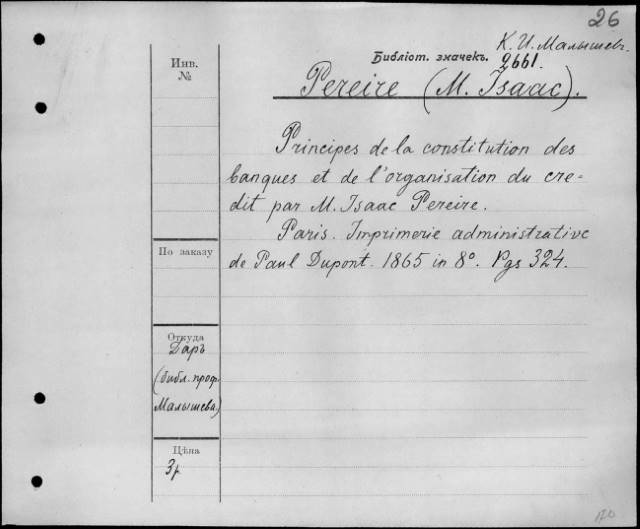 26
К. И. Малышев.
Библіот. значекъ. 2661.
Инв.
№
Pereire (M. Isaac).
Principes de la constitution des
banques et de l'organisation du cre-
dit par M. Isaac Pereire.
Paris. Imprimerie administrative
de Paul Dupont. 1865 in 8°. Pgs 324.
По заказу
Откуда
Даръ
(библ. проф.
Малышева)
Цѣна
3р